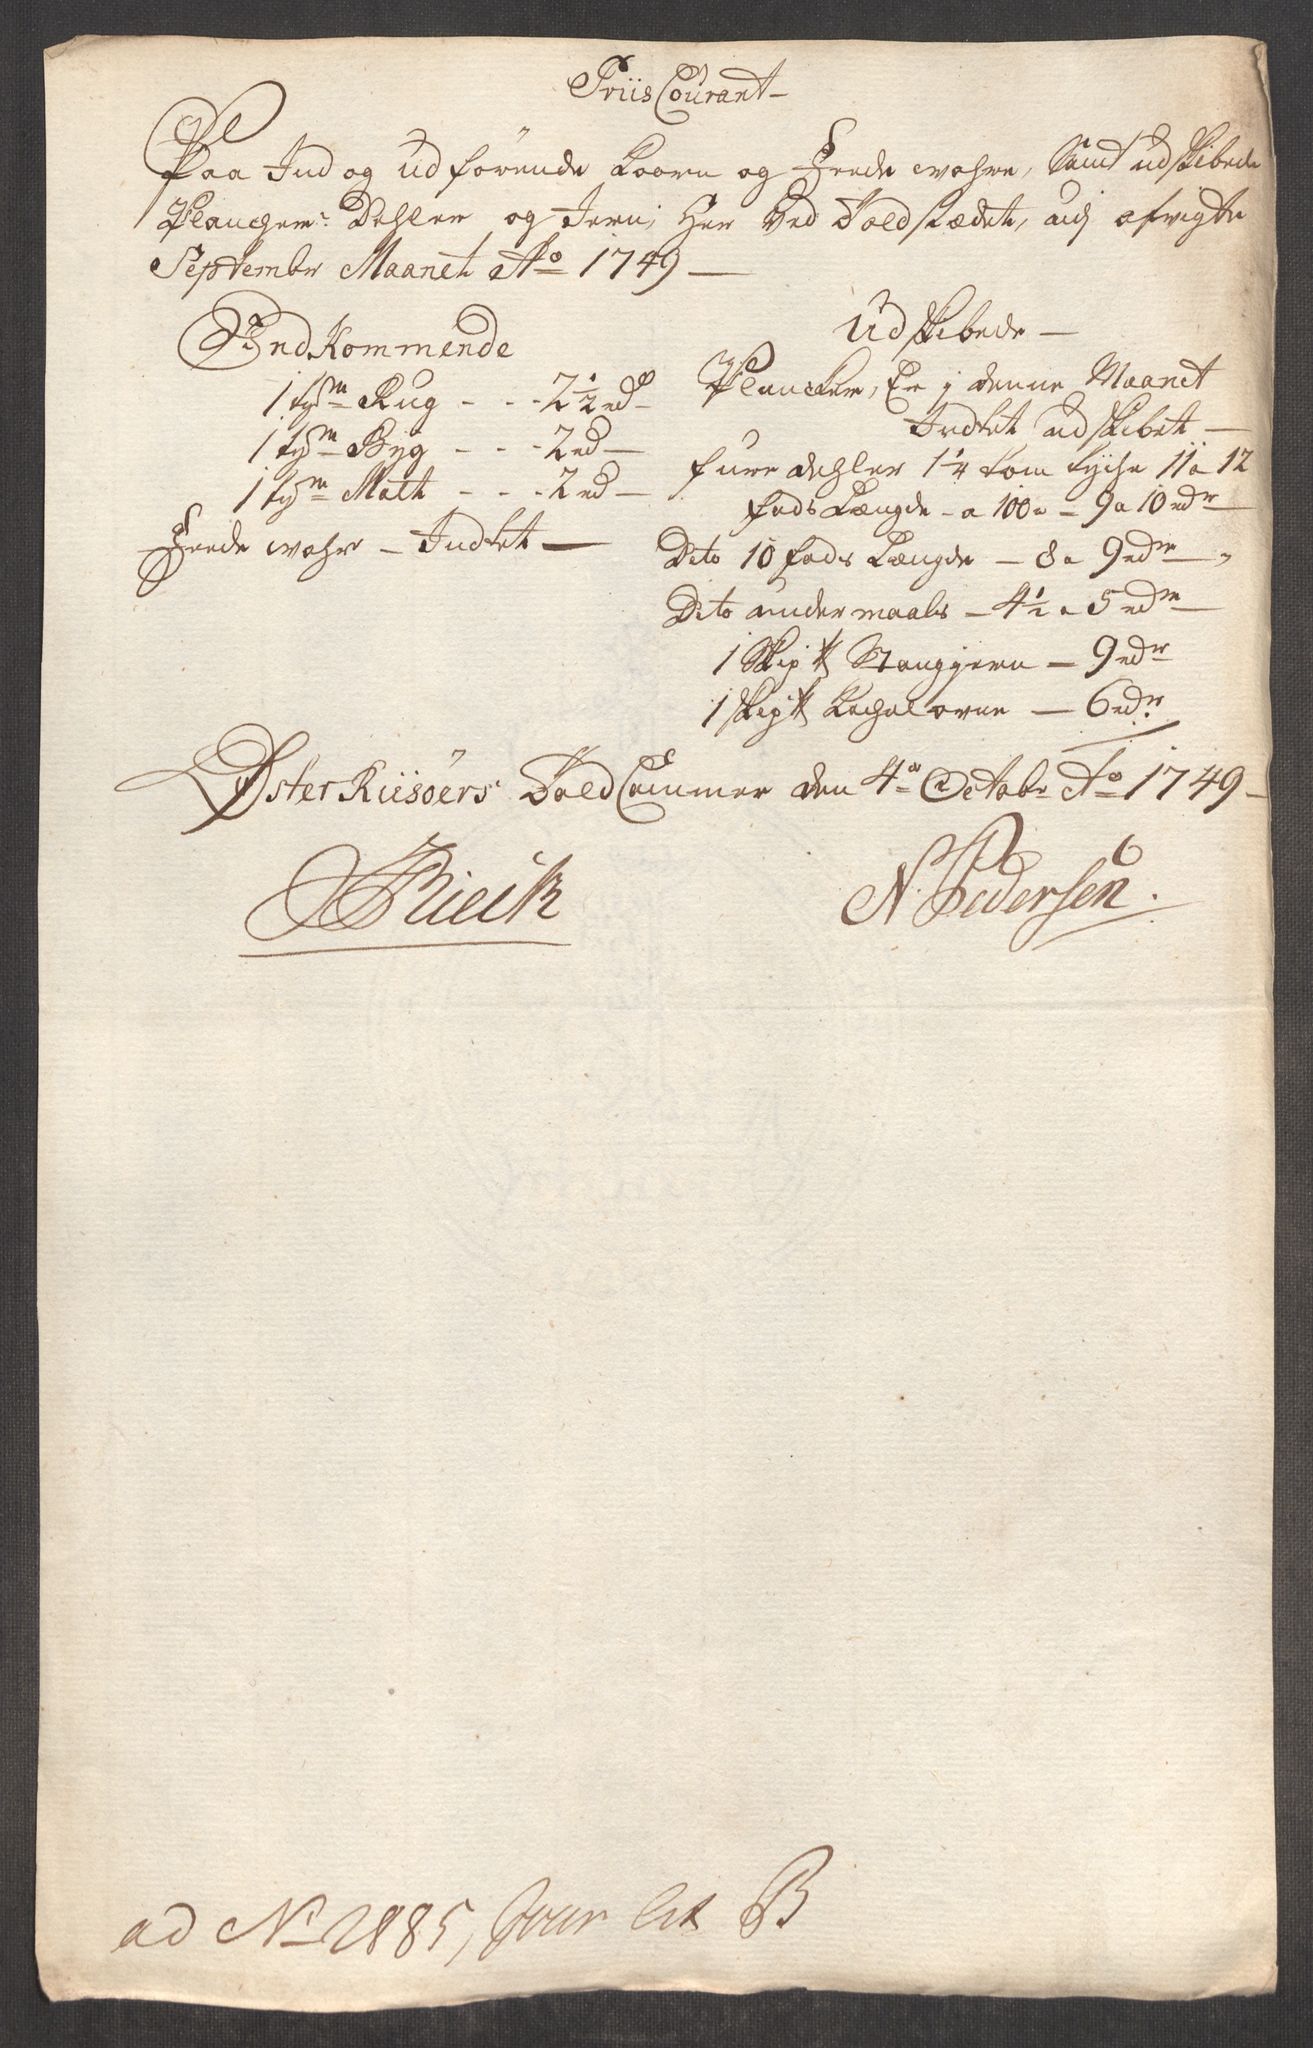 Priis Courant
Paa Ind og udförende Koorn og Feede wahre, Samt udskibede
Plancher: Dehler og Jern, Her Ved Toldstædet, udj afvigte
September Maanet Ao 1749
Ind Kommende
1 tøn Rug - - - 2 1/2 rd
1 tøn Byg - - - 2 rd
1 tøn Malt - - - 2 rd
Feede wahre - Indtet
Udskibede
Plancker, Er j denne Maanet
Indtet udskibet
fure dehler 1 1/4 tom tyche 11 a 12
fods Længde - a 100de - 9 a 10 rdr
Dito 10 fods Længde - 8 a 9 rdr
Dito undermaals - 4 1/2 a 5 rdr
1 Skip ℔ Stangjern - 9 rdr
1 skip ℔ Kachelovne - 6 rdr
Öster Riisöers Told Cammer den 4de Octobr Ao 1749
N. Pedersen.
ad No 2885, Jour lit B